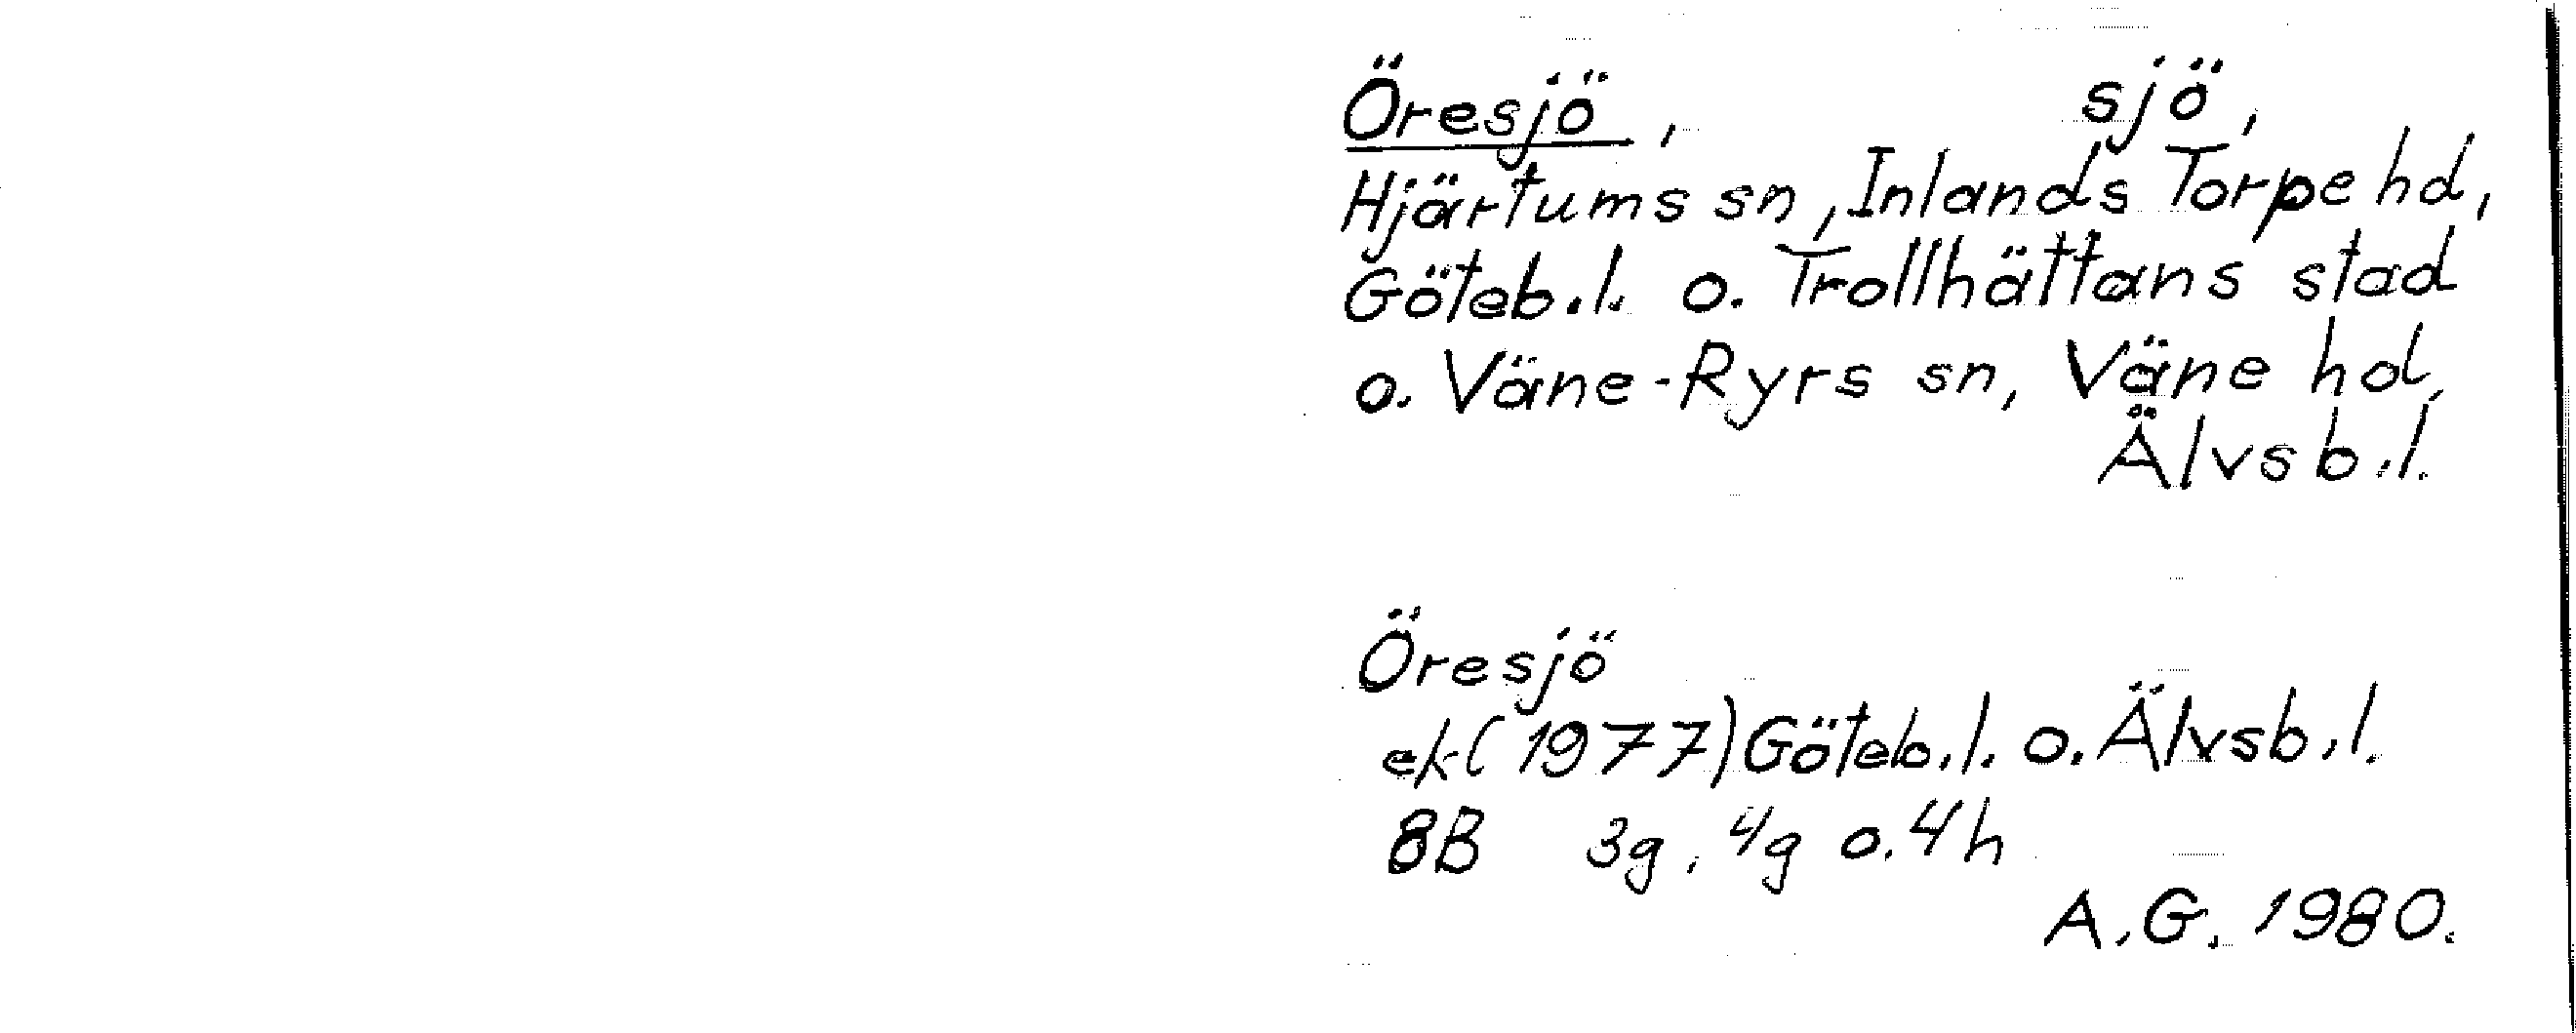 Öresjö, sjö,
Hjärtums sn, Inlands Torpe hd,
Göteb.l. o. Trollhättans stad
o. Väne-Ryrs sn, Väne hd,
Älvsb.l.
Öresjö
ek (1977) Göteb.l. o. Älvsb.l.
8B 3g, 4g o. 4h
A.G. 1980.